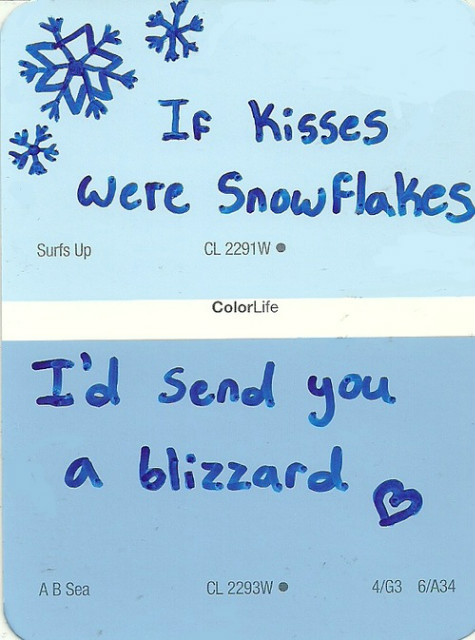 If Kisses
were Snowflakes
Surfs Up CL 2291W
ColorLife
I'd send you
a blizzard
A B Sea CL 2293W 4/G3 6/A34